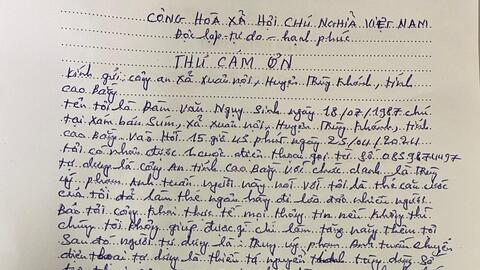 CỘNG HÒA XÃ HỘI CHỦ NGHĨA VIỆT NAM
Độc lập - tự do - hạnh phúc
THƯ CẢM ƠN
Kính gửi: công an xã Xuân nội, Huyện Trùng Khánh, tỉnh
cao Bằng
tên tôi là Đàm Văn Ngụy Sinh ngày 18/07/1987 chú
tại xóm bản Sum, xã xuân nội, Huyện Trùng Khánh, tỉnh
cao Bằng. Vào Hồi 15 giờ 45 phút ngày 25/04/2024
tôi có nhận được 1 cuộc điện thoại gọi từ số 0859874497
tự dưng là công An tỉnh Cao Bằng với chức danh là Trung
úy phạm Anh tuấn người này nói với tôi là thẻ căn cước
của tôi đã làm thẻ ngân hàng đi lừa đảo nhiều người.
Bảo tôi công khai thực tế mọi thông tin nếu không thì
chúng tôi không giúp được gì chỉ làm tăng nặng thêm tội
Sau đó người tự dưng là Trung úy phạm Anh tuấn chuyển
điện thoại tự dưng là thiếu tá nguyễn thanh tùng dùng số